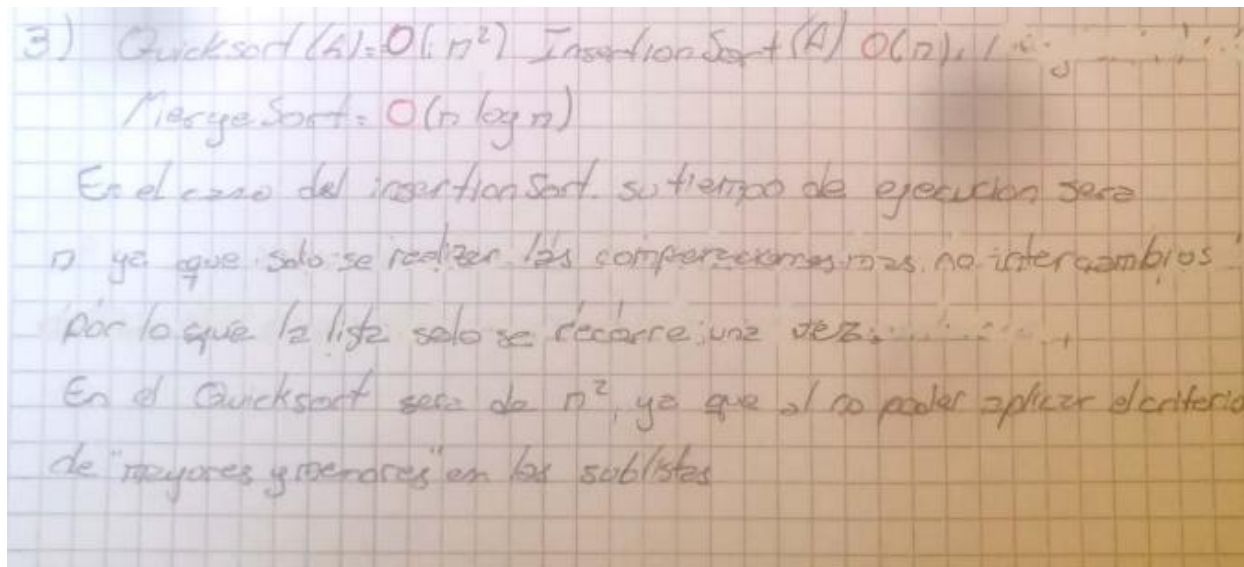 3) Quicksort (A)= O( n²) InsertionSort (A) O(n).
MergeSort = O(n log n)
En el caso del insertionSort. su tiempo de ejecucion sera
n ya que solo se realizan las comparaciones mas no intercambios
por lo que la lista solo se recorre una vez.
En el Quicksort sera de n², ya que al no poder aplicar el criterio
de "mayores y menores" en las sublistas